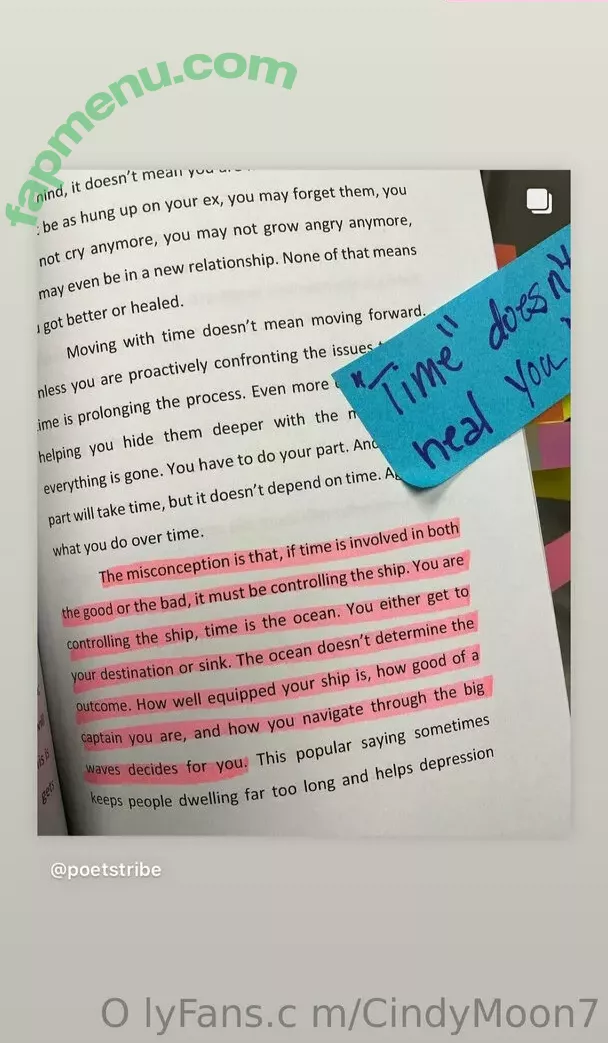 fapmenu.com
mind, it doesn't mean you
be as hung up on your ex, you may forget them, you
not cry anymore, you may not grow angry anymore,
may even be in a new relationship. None of that means
got better or healed.
Moving with time doesn't mean moving forward.
nless you are proactively confronting the issues
ime is prolonging the process. Even more
helping you hide them deeper with the
everything is gone. You have to do your part. And
part will take time, but it doesn't depend on time.
what you do over time.
"Time" doesn't
heal you
The misconception is that, if time is involved in both
the good or the bad, it must be controlling the ship. You are
controlling the ship, time is the ocean. You either get to
your destination or sink. The ocean doesn't determine the
outcome. How well equipped your ship is, how good of a
captain you are, and how you navigate through the big
waves decides for you. This popular saying sometimes
keeps people dwelling far too long and helps depression
is is
gets
@poetstribe
O lyFans.c m/CindyMoon7